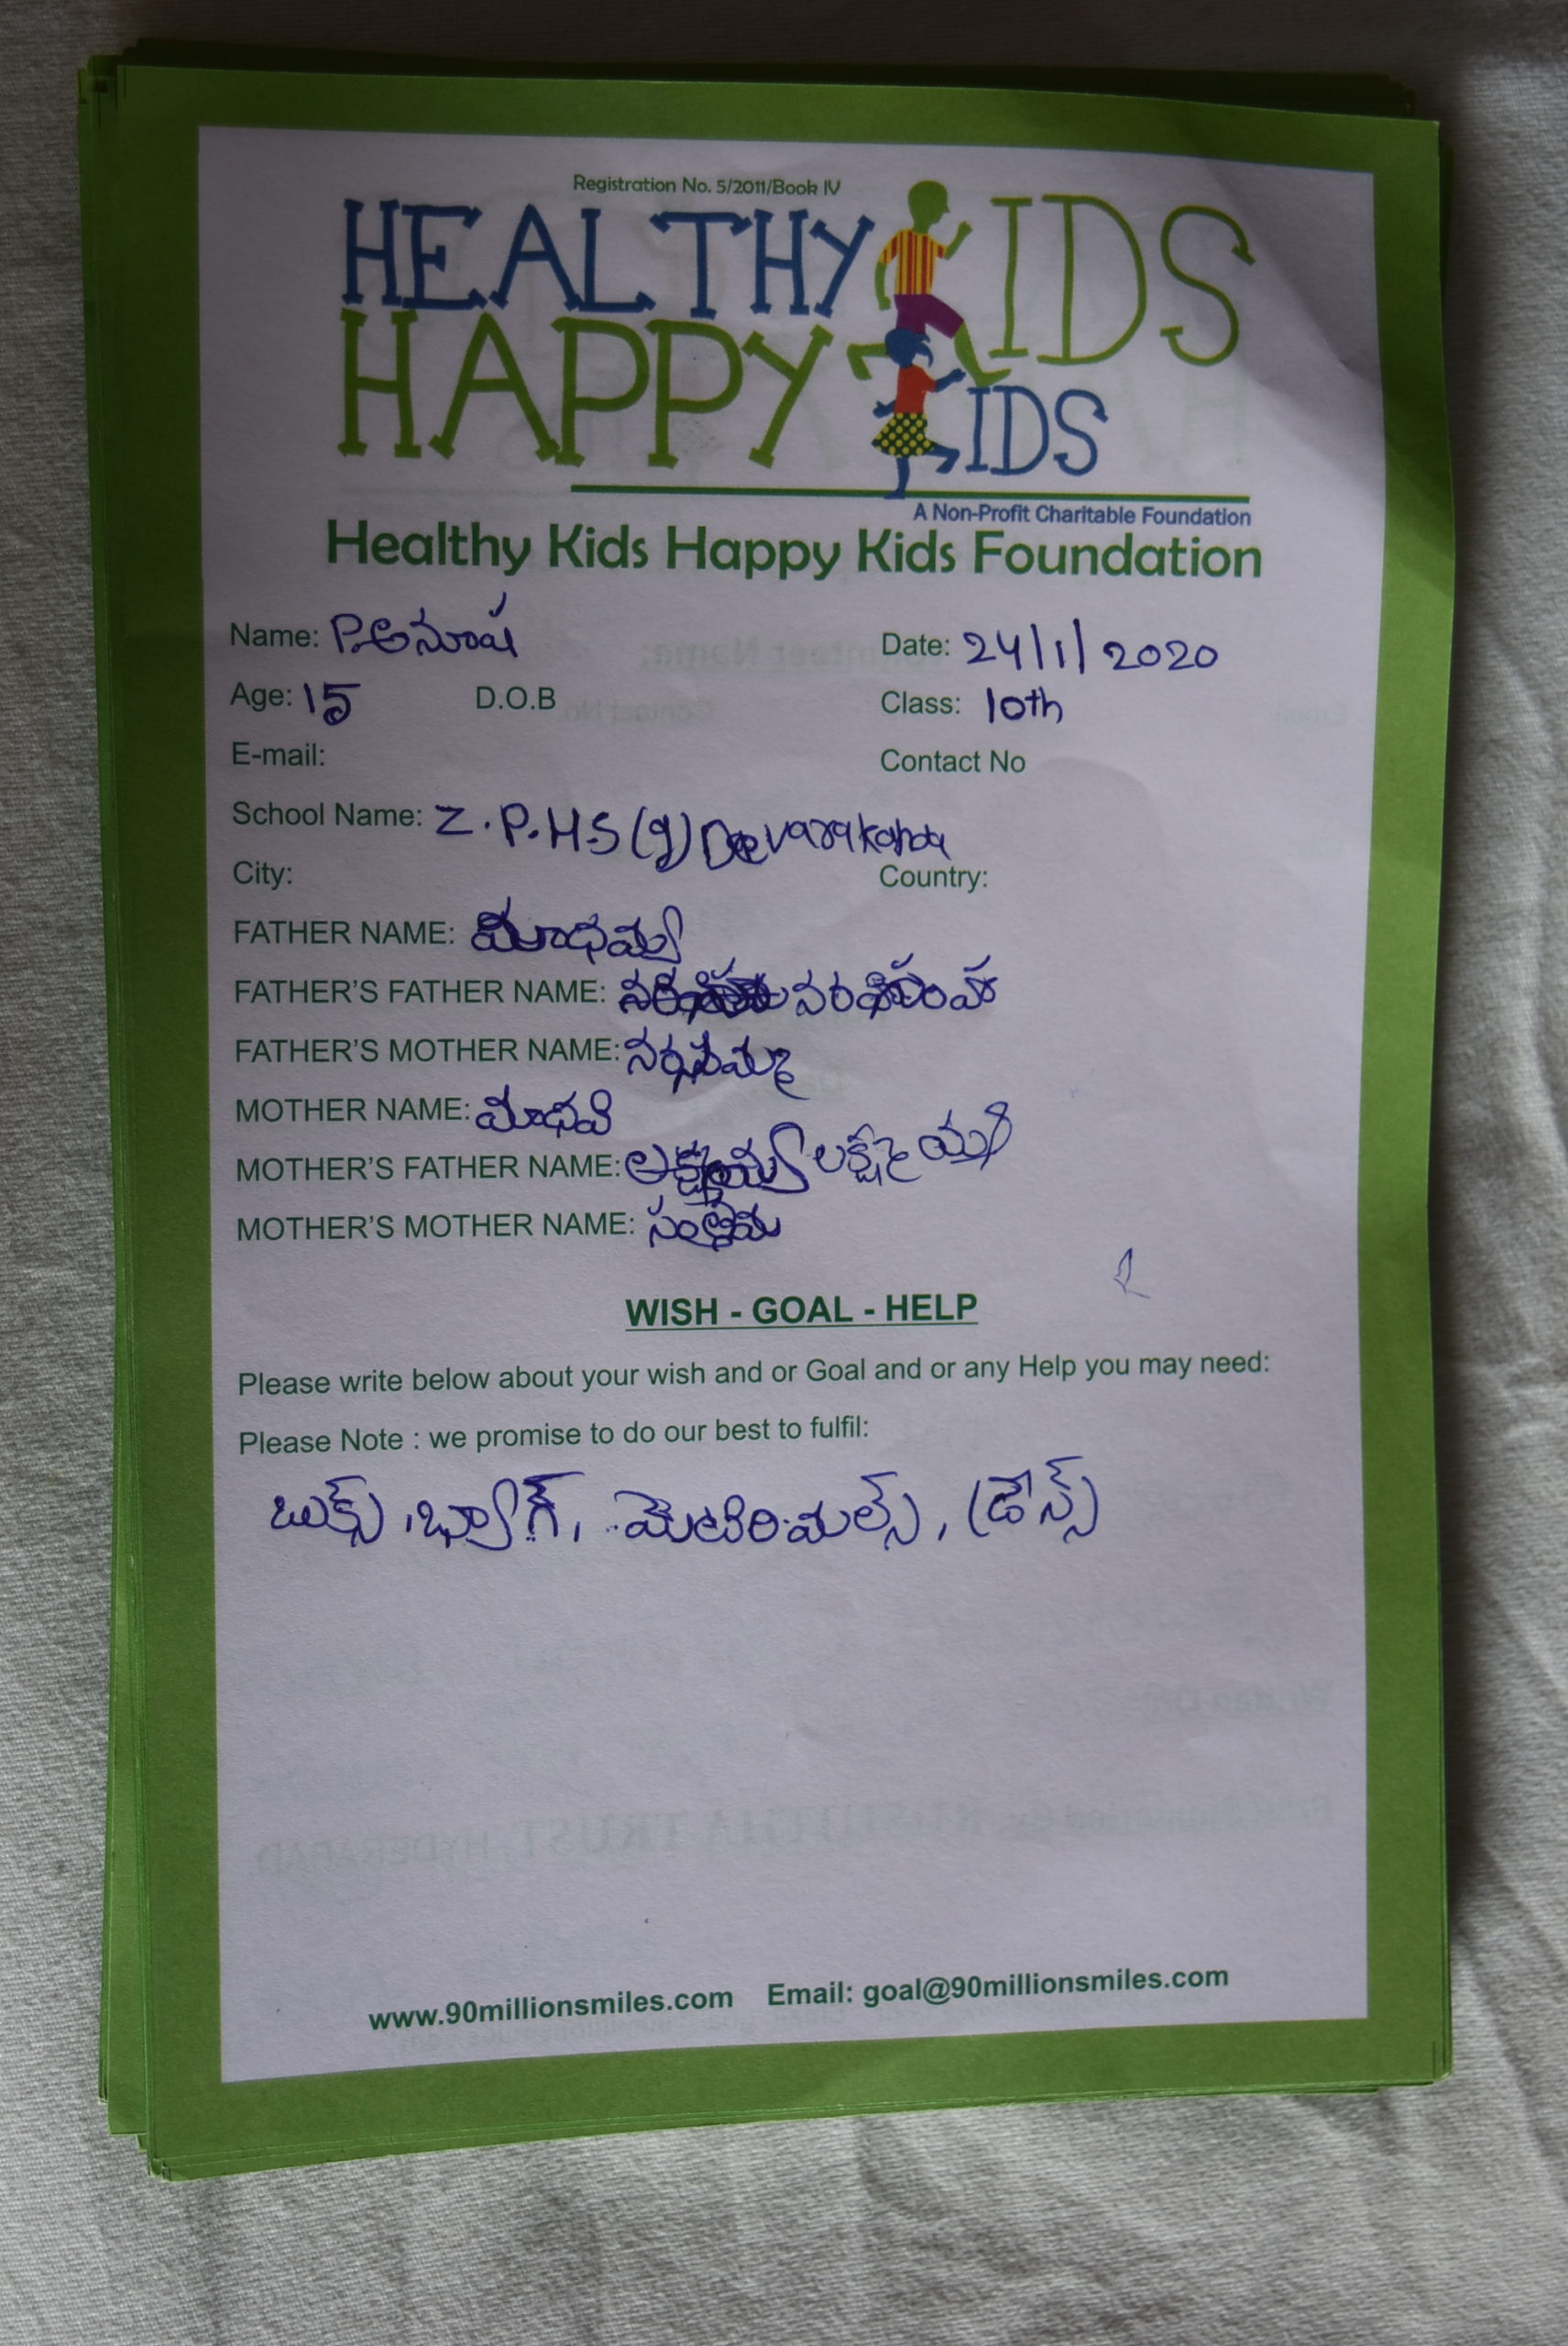 Registration No. 5/2011/Book IV
HEALTHY KIDS
HAPPY KIDS
A Non-Profit Charitable Foundation
Healthy Kids Happy Kids Foundation
Name: P.అనూష Date: 24/1/2020
Age: 15 D.O.B Class: 10th
E-mail: Contact No
School Name: Z.P.H.S (g) Devarakonda
City: Country:
FATHER NAME:
FATHER'S FATHER NAME: నరసింహ
FATHER'S MOTHER NAME:
MOTHER NAME: మాధవి
MOTHER'S FATHER NAME: లక్ష్మయ్య
MOTHER'S MOTHER NAME:
WISH - GOAL - HELP
Please write below about your wish and or Goal and or any Help you may need:
Please Note : we promise to do our best to fulfil:
బుక్స్, బ్యాగ్, మెటిరియల్స్, డ్రెస్స్
www.90millionsmiles.com Email: goal@90millionsmiles.com